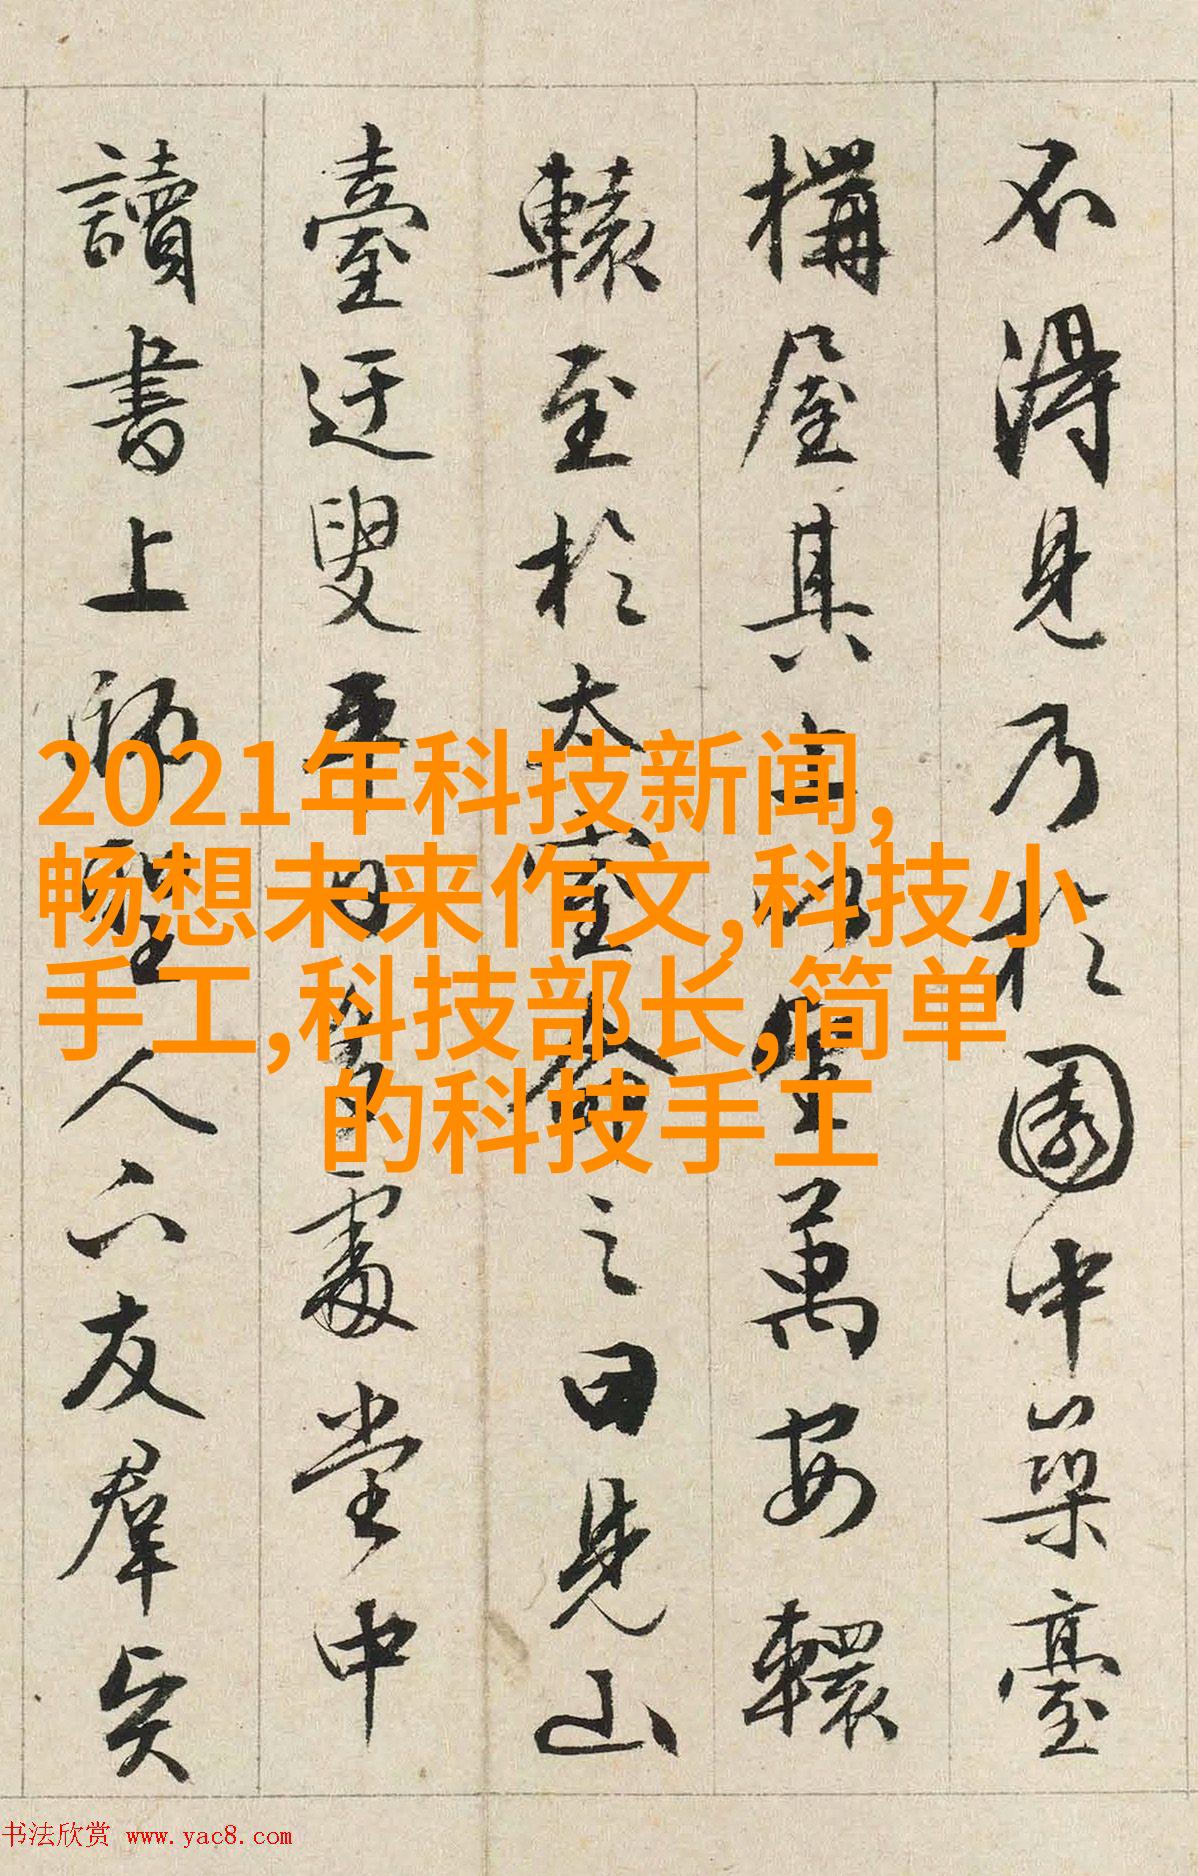 不得見乃於園中築臺
構屋其上以望萬安轘
轅至於太室命之曰見山
臺迂叟平日多處堂中
讀書上師聖人下友羣賢
2021年科技新闻,
畅想未来作文,科技小
手工,科技部长,简单
的科技手工
书法欣赏 www.yac8.com